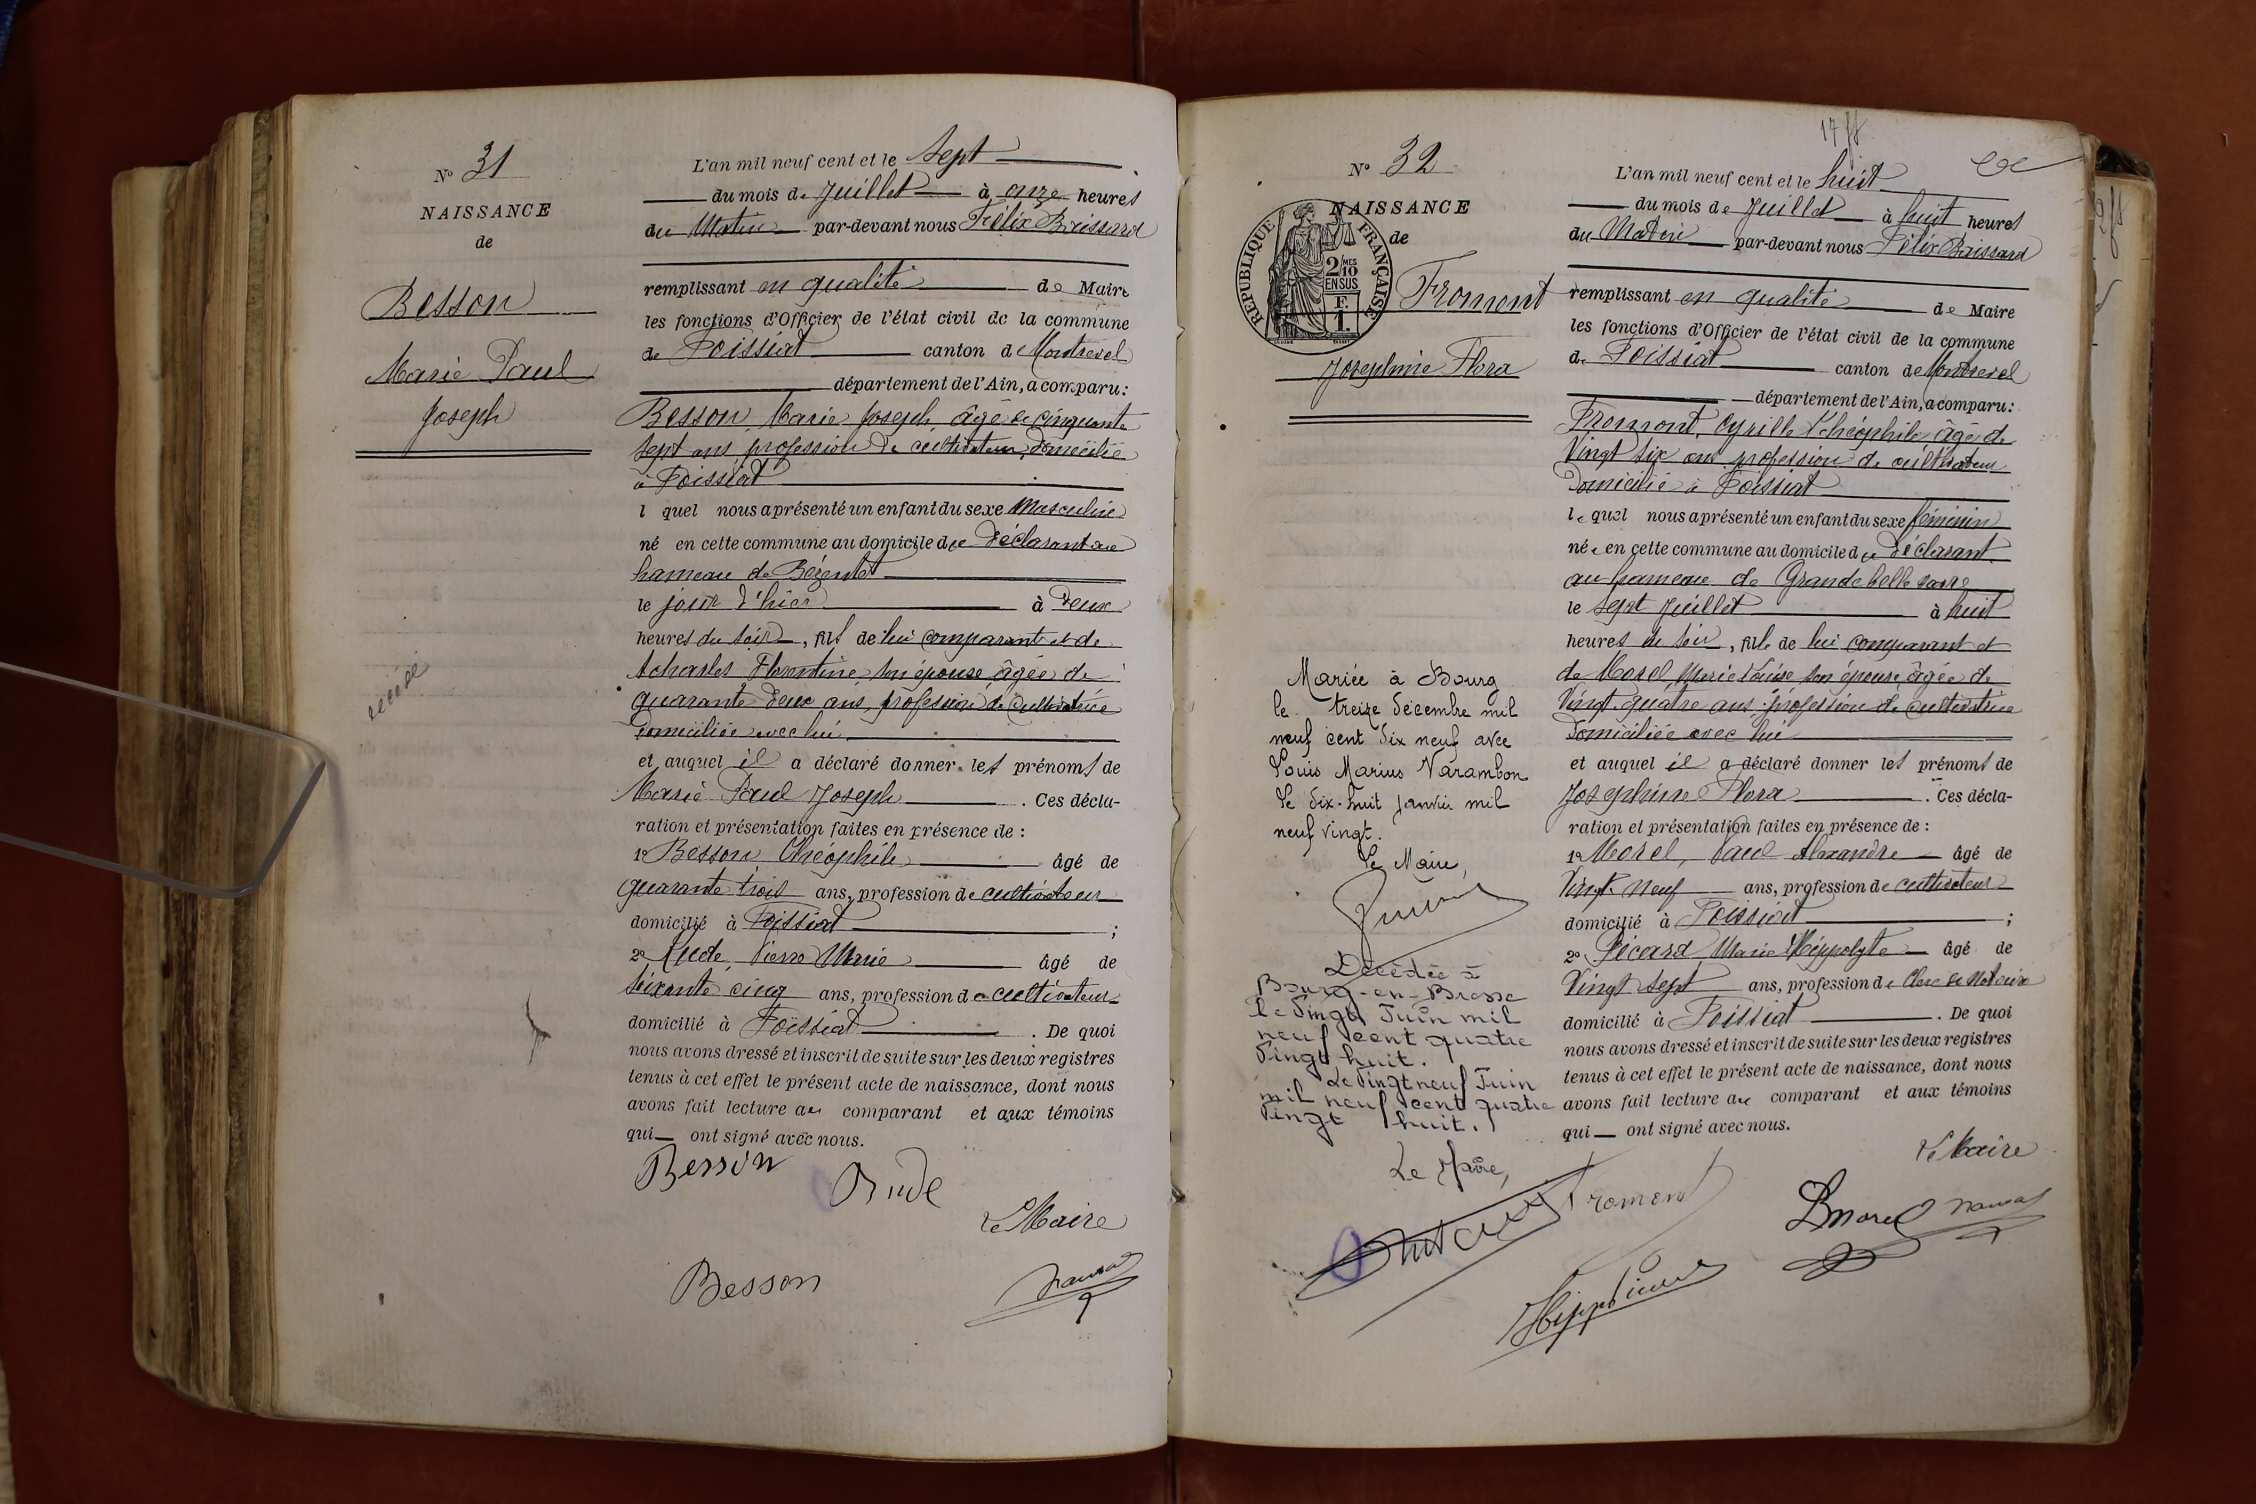 N° 31
NAISSANCE
de
Besson
Marie Paul
Joseph
décédé
L'an mil neuf cent et le Sept
du mois de Juillet à onze heures
du Matin par-devant nous Félix Buissard
remplissant en qualité de Maire
les fonctions d'Officier de l'état civil de la commune
de Foissiat canton de Montrevel
département de l'Ain, a comparu:
Besson, Marie Joseph, âgé de cinquante
sept ans profession de cultivateur, domicilié
à Foissiat
l quel nous a présenté un enfant du sexe Masculin
né en cette commune au domicile du Déclarant au
hameau de Bézentet
le jour d'hier à Deux
heures du soir, fils de lui comparant et de
Florentine, son épouse âgée de
quarante Deux ans, profession de cultivatrice
Domiciliée avec lui
et auquel il a déclaré donner les prénoms de
Marie Paul Joseph. Ces décla-
ration et présentation faites en présence de :
1° Besson Théophile âgé de
quarante trois ans, profession de cultivateur
domicilié à Foissiat ;
2° Rude, Pierre Marie âgé de
Soixante cinq ans, profession de cultivateur
domicilié à Foissiat. De quoi
nous avons dressé et inscrit de suite sur les deux registres
tenus à cet effet le présent acte de naissance, dont nous
avons fait lecture au comparant et aux témoins
qui ont signé avec nous.
Besson
Rude
Le Maire
Besson
17 ff
N° 32
NAISSANCE
de
REPUBLIQUE FRANÇAISE
2/10 MES
EN SUS
F.
1.
Fromont
Josephine Flora
Mariée à Bourg
le treize décembre mil
neuf cent dix neuf avec
Louis Marius Varambon
Le dix-huit janvier mil
neuf vingt.
Le Maire,
Décédée à
Bourg-en-Bresse
le Vingt Juin mil
neuf cent quatre
Vingt huit.
Le Vingt neuf Juin
mil neuf cent quatre
Vingt huit.
Le Maire,
L'an mil neuf cent et le huit
du mois de Juillet à huit heures
du Matin par-devant nous Félix Buissard
remplissant en qualité de Maire
les fonctions d'Officier de l'état civil de la commune
de Foissiat canton de Montrevel
département de l'Ain, a comparu:
Fromont, Cyrille Théophile âgé de
Vingt Six ans profession de cultivateur
Domicilié à Foissiat
le quel nous a présenté un enfant du sexe féminin
née en cette commune au domicile du Déclarant
au hameau de Grande belle vavre
le Sept Juillet à huit
heures du soir, fille de lui comparant et
de Morel, Marie Louise son épouse, âgée de
Vingt quatre ans profession de cultivatrice
Domiciliée avec lui
et auquel il a déclaré donner les prénoms de
Josephine Flora. Ces décla-
ration et présentation faites en présence de :
1° Morel, Paul Alexandre âgé de
Vingt neuf ans, profession de cultivateur
domicilié à Foissiat ;
2° Picard Marie Hippolyte âgé de
Vingt Sept ans, profession de Clerc de Notaire
domicilié à Foissiat. De quoi
nous avons dressé et inscrit de suite sur les deux registres
tenus à cet effet le présent acte de naissance, dont nous
avons fait lecture au comparant et aux témoins
qui ont signé avec nous.
Le Maire
Fromont
Morel